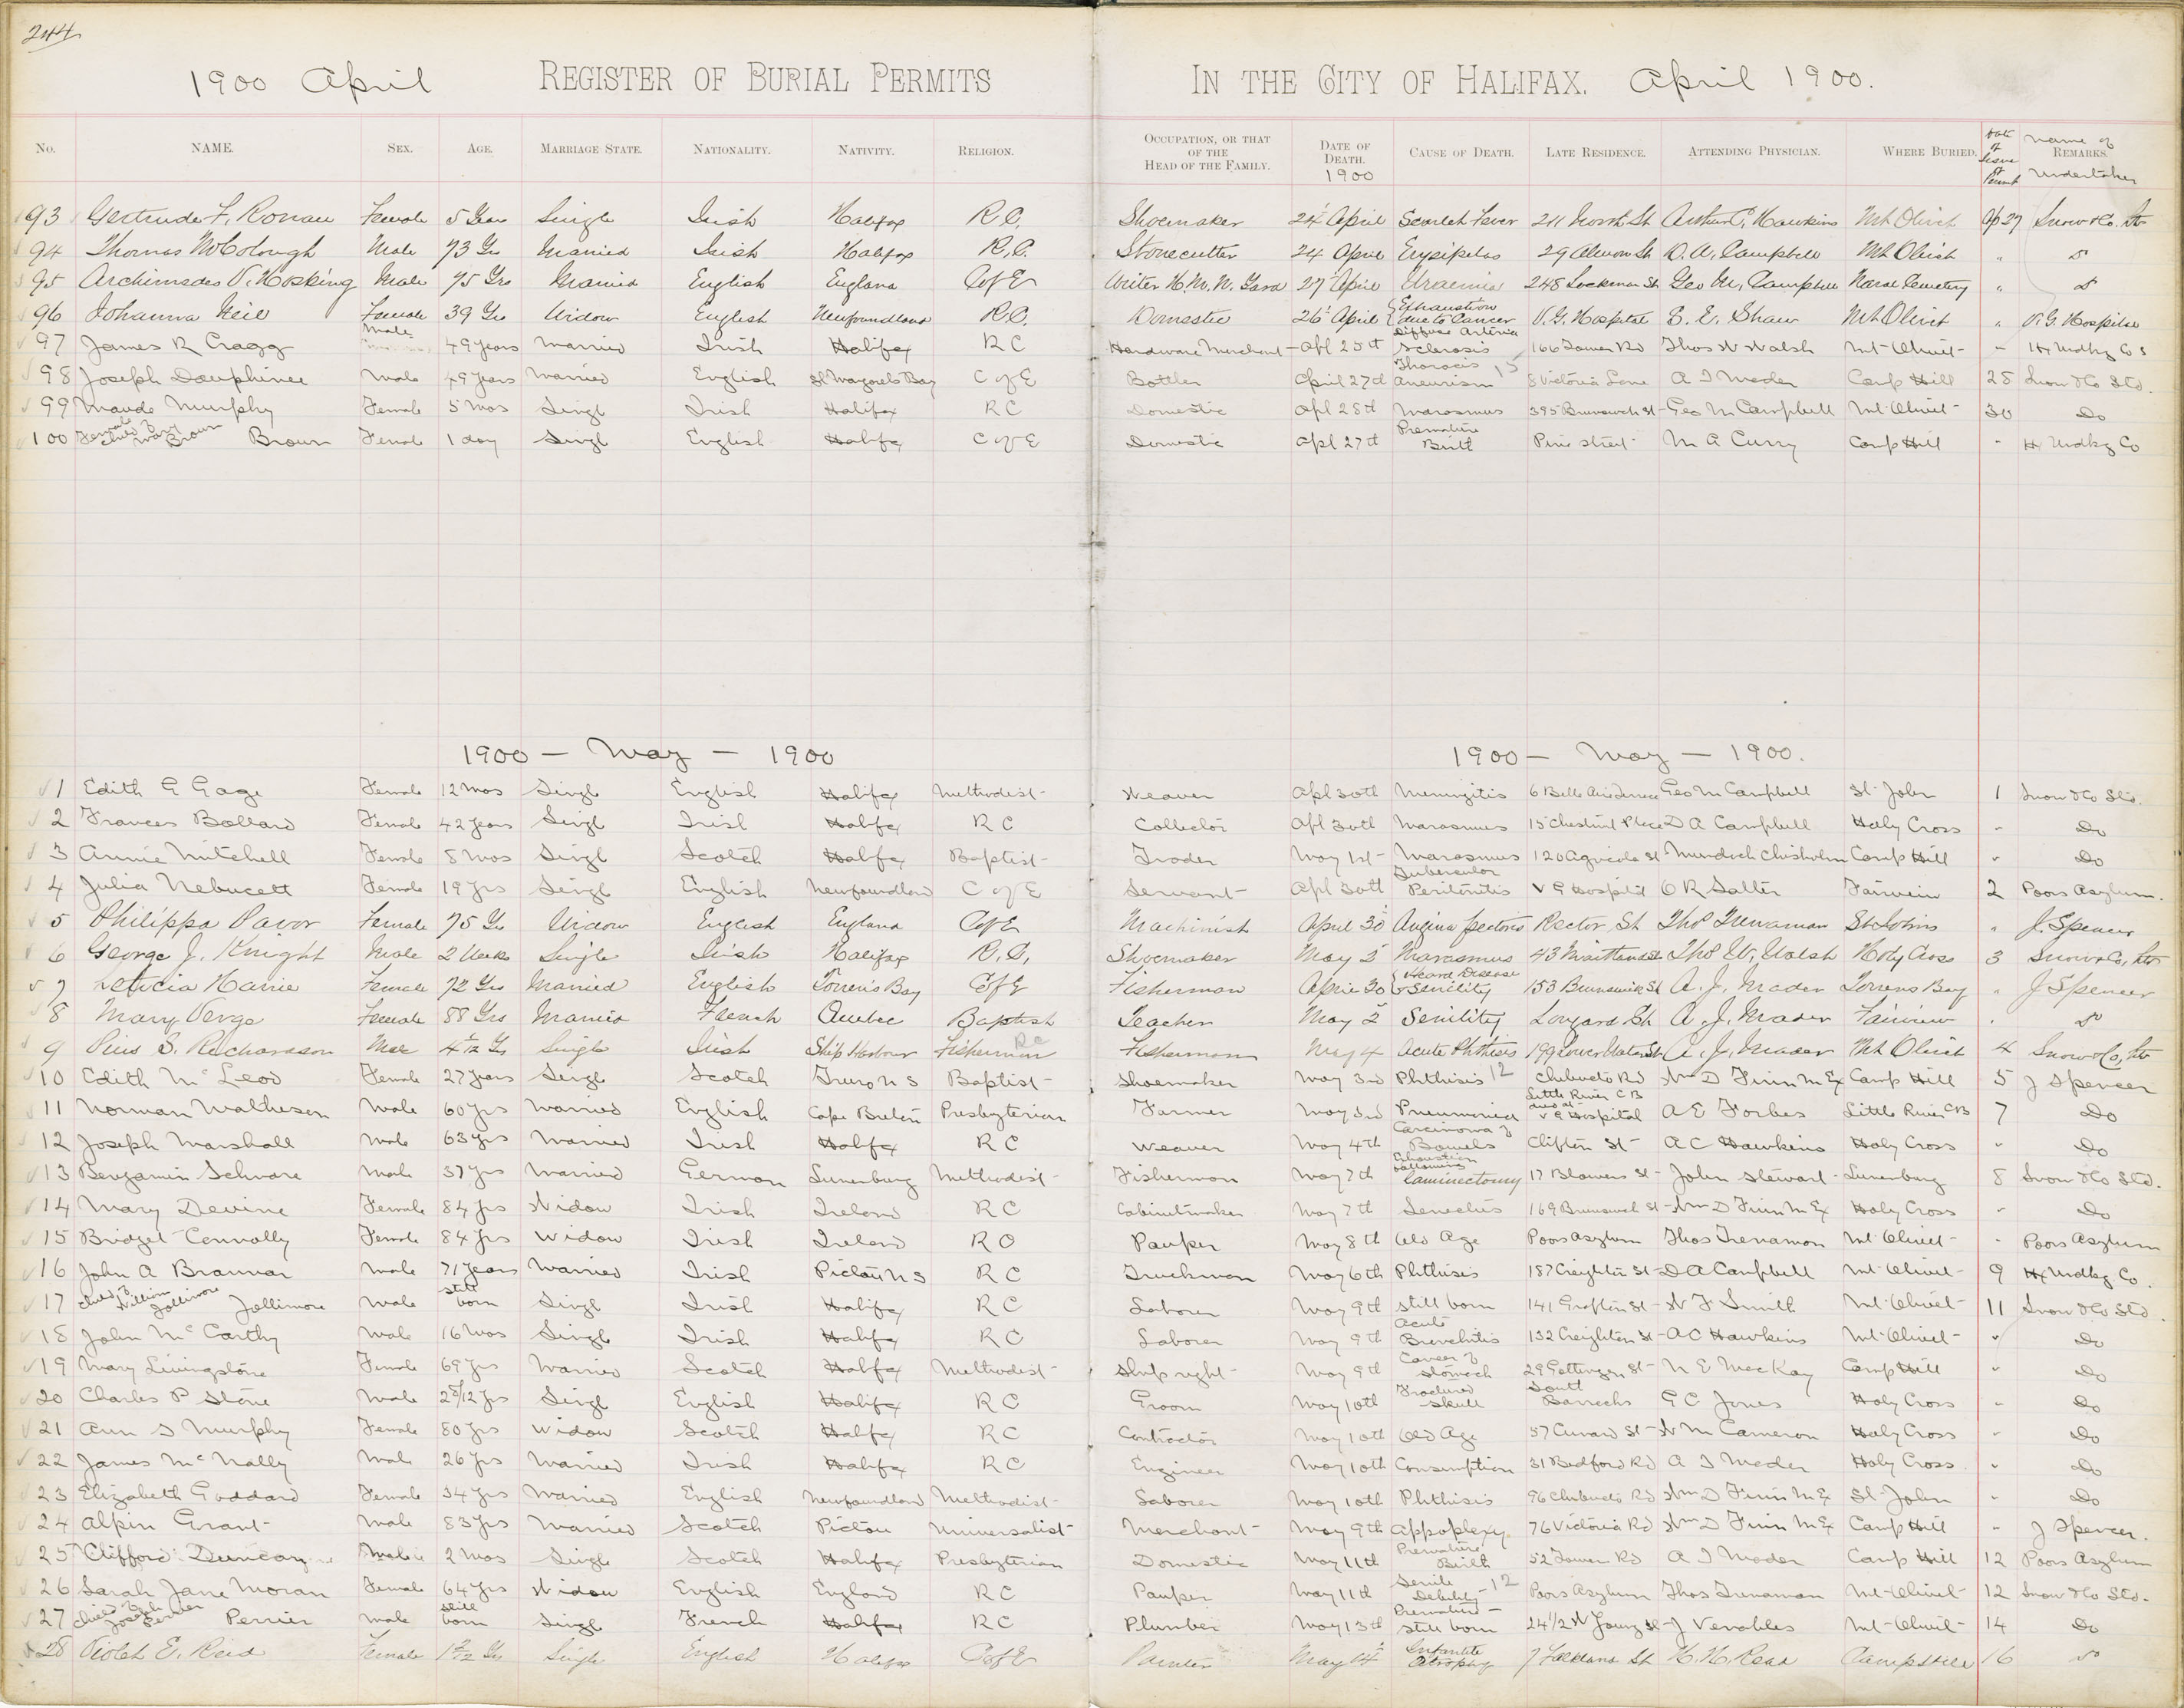 244
1900 April REGISTER OF BURIAL PERMITS IN THE CITY OF HALIFAX. April 1900.
No. NAME. SEX. AGE. MARRIAGE STATE. NATIONALITY. NATIVITY. RELIGION. OCCUPATION, OR THAT OF THE HEAD OF THE FAMILY. DATE OF DEATH. 1900 CAUSE OF DEATH. LATE RESIDENCE. ATTENDING PHYSICIAN. WHERE BURIED. Date of Issue of Permit Name of REMARKS. Undertaker
93 Gertrude F. Ronan Female 5 Years Single Irish Halifax R.C. Shoemaker 24 April Scarlet Fever 211 North St Arthur C. Hawkins Mt Olivet Ap 27 Snow & Co.
94 Thomas McColough Male 73 Yrs Married Irish Halifax R.C. Stonecutter 24 April Erysipelas 29 Almon St D. A. Campbell Mt Olivet " Do
95 Archimedes V. Hosking Male 75 Yrs Married English England C of E Writer H.M.N. Yard 27 April Uraemia 248 Lockman St Geo M. Campbell Naval Cemetery " Do
96 Johanna Neil Female 39 Yrs Widow English Newfoundland R.C. Domestic 26 April Exhaustion due to Cancer V.G. Hospital E. E. Shaw Mt Olivet " V.G. Hospital
97 James R Cragg Male 49 years Married Irish Halifax R C Hardware Merchant Apl 25th Diffuse Arterio Sclerosis 166 Tower Rd Thos W Walsh Mt Olivet " Hx Undkg Co
98 Joseph Dauphinee Male 49 years Married English St Margrets Bay C of E Bottler April 27th Thoracic Aneurism 15 8 Victoria Lane A I Mader Camp Hill 28 Snow & Co Ltd.
99 Maude Murphy Female 5 Mos Single Irish Halifax R C Domestic Apl 28th Marasmus 395 Brunswick St Geo M Campbell Mt Olivet 30 Do
100 Female Child Brown Female 1 day Single English Halifax C of E Domestic Apl 27th Premature Birth Pine street M A Curry Camp Hill " Hx Undkg Co
1900 — May — 1900 1900 — May — 1900.
1 Edith G Gage Female 12 Mos Single English Halifax Methodist Weaver Apl 30th Meningitis 6 Belle Aire Terrace Geo M Campbell St. John 1 Snow & Co Ltd.
2 Frances Bollard Female 42 years Single Irish Halifax R C Collector Apl 30th Marasmus 15 Chestnut Place D A Campbell Holy Cross " Do
3 Annie Mitchell Female 8 Mos Single Scotch Halifax Baptist Trader May 1st Marasmus 120 Agricola St Murdoch Chisholm Camp Hill " Do
4 Julia Nebucett Female 19 yrs Single English Newfoundland C of E Servant Apl 30th Tubercular Peritonitis V G Hospital R Salter Fairview 2 Poors Asylum.
5 Philippa Pavor Female 75 Yrs Widow English England C of E Machinist April 30 Angina pectoris Rector St Thos Trenaman St Johns " J. Spencer
6 George J. Knight Male 2 Weeks Single Irish Halifax R.C. Shoemaker May 2 Marasmus 43 Maitland St Thos W. Walsh Holy Cross 3 Snow & Co, Ltd
7 Leticia Female 72 Yrs Married English Torrens Bay C of E Fisherman April 30 Heart Disease Senility 153 Brunswick St A. J. Mader Torrens Bay " J Spencer
8 Mary Verge Female 88 Yrs Married French Quebec Baptist Teacher May 2 Senility Longard St A. J. Mader Fairview " Do
9 Pius S. Richardson Male Single Irish Ship Harbour Fisherman R C Fisherman May 4 Acute Phthisis 199 Lower Water St A. J. Mader Mt Olivet 4 Snow & Co, Ltd
10 Edith McLeod Female 27 years Single Scotch Truro N S Baptist Shoemaker May 3rd Phthisis 12 Chebucto Rd Wm D Finn M Ex Camp Hill 5 J Spencer
11 Norman Matheson Male 60 yrs Married English Cape Breton Presbyterian Farmer May 3rd Pneumonia Little River C B died at V G Hospital A E Forbes Little River C B 7 Do
12 Joseph Marshall Male 63 yrs Married Irish Halifax R C Weaver May 4th Carcinoma of Bowels Clifton St A C Hawkins Holy Cross " Do
13 Benjamin Schnare Male 57 yrs Married German Lunenburg Methodist Fisherman May 7th Exhaustion following laminectomy 17 Blowers St John Stewart Lunenburg 8 Snow & Co Ltd.
14 Mary Devine Female 84 yrs Widow Irish Ireland R C Cabinetmaker May 7th Senectus 169 Brunswick St Wm D Finn M Ex Holy Cross " Do
15 Bridget Connolly Female 84 yrs Widow Irish Ireland R C Pauper May 8th Old Age Poors Asylum Thos Trenamon Mt Olivet " Poors Asylum
16 John A Brannan Male 71 years Married Irish Pictou N S R C Truckman May 6th Phthisis 187 Creighton St D A Campbell Mt Olivet 9 Hx Undkg Co.
17 Child of William Jollimore Jollimore Male still born Single Irish Halifax R C Laborer May 9th still born 141 Grafton St W F Smith Mt Olivet 11 Snow & Co Ltd.
18 John McCarthy Male 16 Mos Single Irish Halifax R C Laborer May 9th Acute Bronchitis 132 Creighton St A C Hawkins Mt Olivet " Do
19 Mary Livingstone Female 69 yrs Married Scotch Halifax Methodist Shipright May 9th Cancer of Stomach 29 Gottingen St N E MacKay Camp Hill " Do
20 Charles P Stone Male 2 8/12 yrs Single English Halifax R C Groom May 10th Fractured Skull South Barracks G C Jones Holy Cross " Do
21 Ann S Murphy Female 80 yrs Widow Scotch Halifax R C Contractor May 10th Old Age 57 Cunard St W M Cameron Holy Cross " Do
22 James McNally Male 26 yrs Married Irish Halifax R C Engineer May 10th Consumption 31 Bedford Rd A I Mader Holy Cross " Do
23 Elizabeth Goddard Female 34 yrs Married English Newfoundland Methodist Laborer May 10th Phthisis 96 Chebucto Rd Wm D Finn M Ex St John " Do
24 Alpin Grant Male 83 yrs Married Scotch Pictou Universalist Merchant May 9th Appoplexy 76 Victoria Rd Wm D Finn M Ex Camp Hill " J Spencer.
25 Clifford Duncan Male 2 Mos Single Scotch Halifax Presbyterian Domestic May 11th Premature Birth 52 Tower Rd A I Mader Camp Hill 12 Poors Asylum
26 Sarah Jane Moran Female 64 yrs Widow English England R C Pauper May 11th Senile Debility 12 Poors Asylum Thos Trenaman Mt Olivet 12 Snow & Co Ltd.
27 Child of Joseph Perrier Perrier Male still born Single French Halifax R C Plumber May 13th Premature still born 24 1/2 N Young St J Venables Mt Olivet 14 Do
28 Violet E. Reid Female Single English Halifax C of E Painter May 14 Infantile Atrophy 7 Falkland St H. H. Read Camp Hill 16 Do